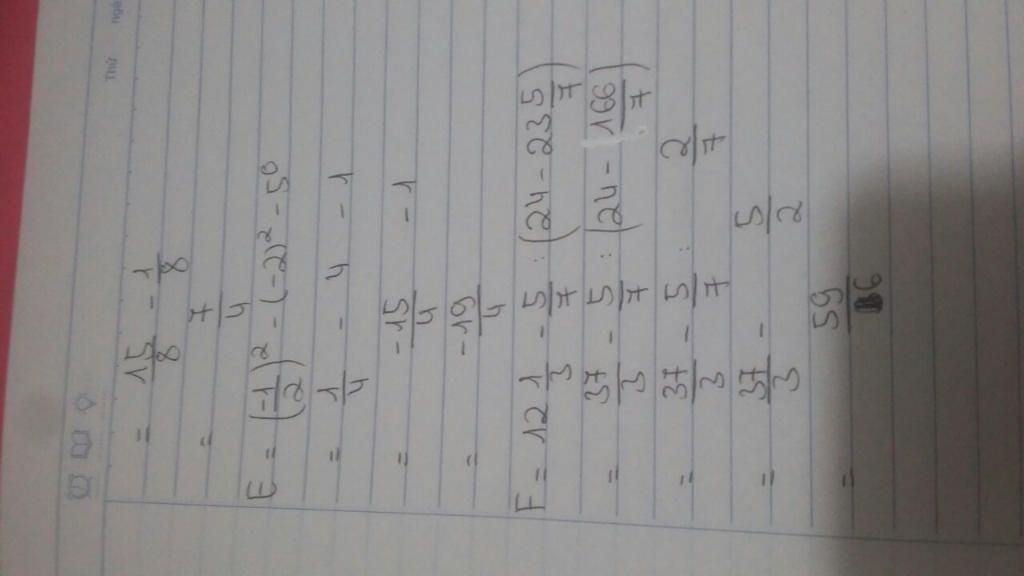 Thứ
= 15/8 - 1/8
= 7/4
E = (-1/2)² - (-2)² - 5⁰
= 1/4 - 4 - 1
= -15/4 - 1
= -19/4
F = 12 1/3 - 5/7 : (24 - 23 5/7)
= 37/3 - 5/7 : (24 - 166/7)
= 37/3 - 5/7 : 2/7
= 37/3 - 5/2
= 59/6